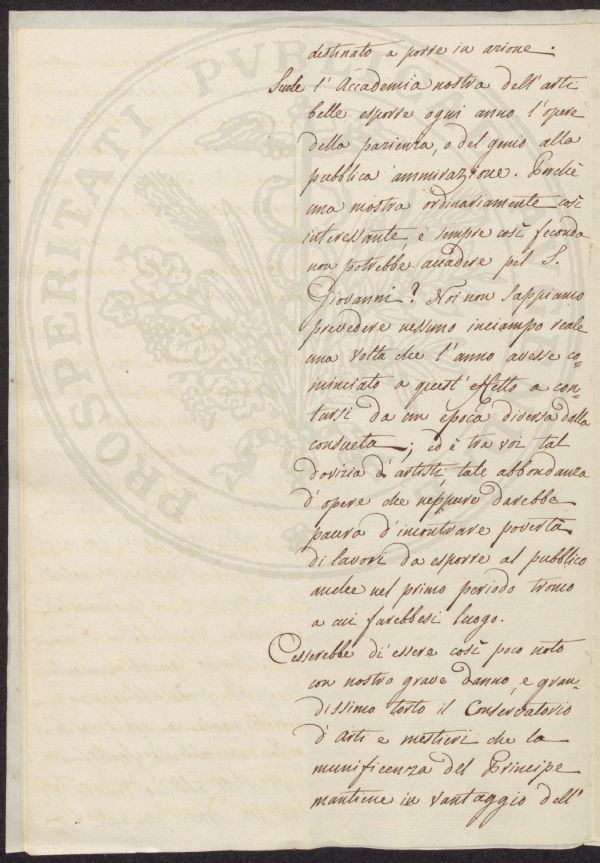 PROSPERITATI PUBLICAE
destinato a porre in azione.
Suole l'Accademia nostra dell'arti
belle esporre ogni anno l'opere
della pazienza, o del genio alla
pubblica ammirazione. Perchè
una mostra ordinariamente così
interessante, e sempre così feconda
non potrebbe accadere pel S.
Giovanni? Noi non sappiamo
prevedere nessuno inciampo reale
una volta che l'anno avesse co-
minciato a quest'effetto a con-
tarsi da un epoca diversa dalla
consueta; ed è tra voi tal
dovizia d'artisti, tale abbondanza
d'opere che neppure darebbe
paura d'incontrare povertà
di lavori da esporre al pubblico
anche nel primo periodo tronco
a cui farebbesi luogo.
Cesserebbe di essere così poco noto
con nostro grave danno, e gran-
dissimo torto il Conservatorio
d'Arti e mestieri che la
munificenza del Principe
mantiene in vantaggio dell'